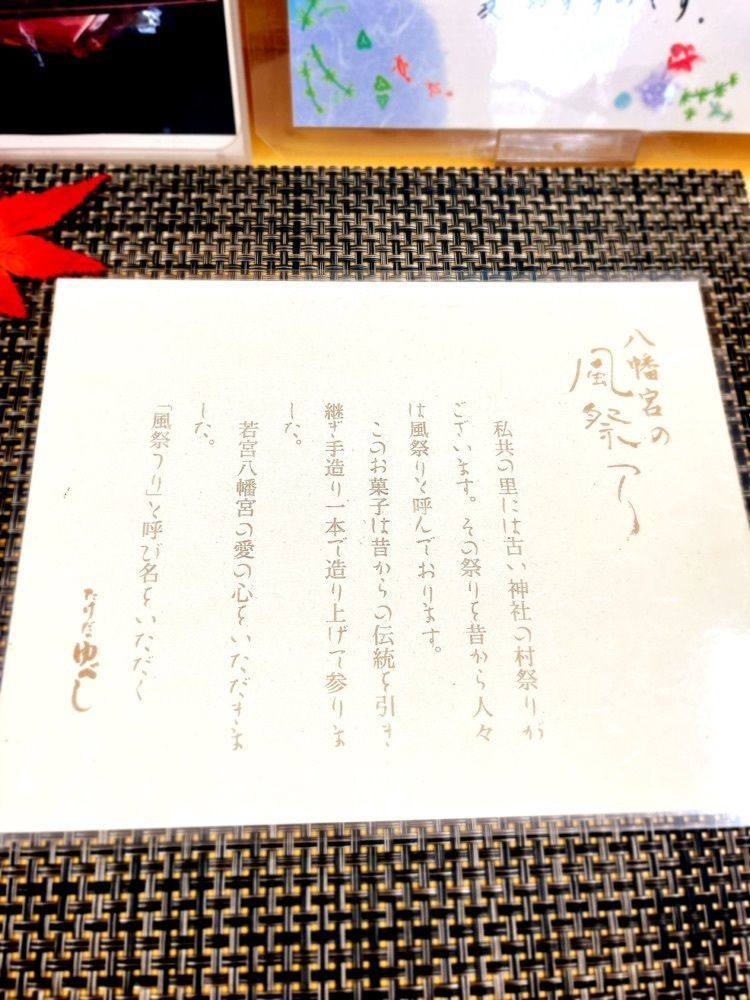 八幡宮の
風祭り
私共の里には古い神社の村祭りが
ございます。その祭りを昔から人々
は風祭りと呼んでおります。
このお菓子は昔からの伝統を引き
継ぎ手造り一本で造り上げて参りま
した。
若宮八幡宮の愛の心をいただきま
した。
「風祭り」と呼び名をいただく
たけだ
ゆべし